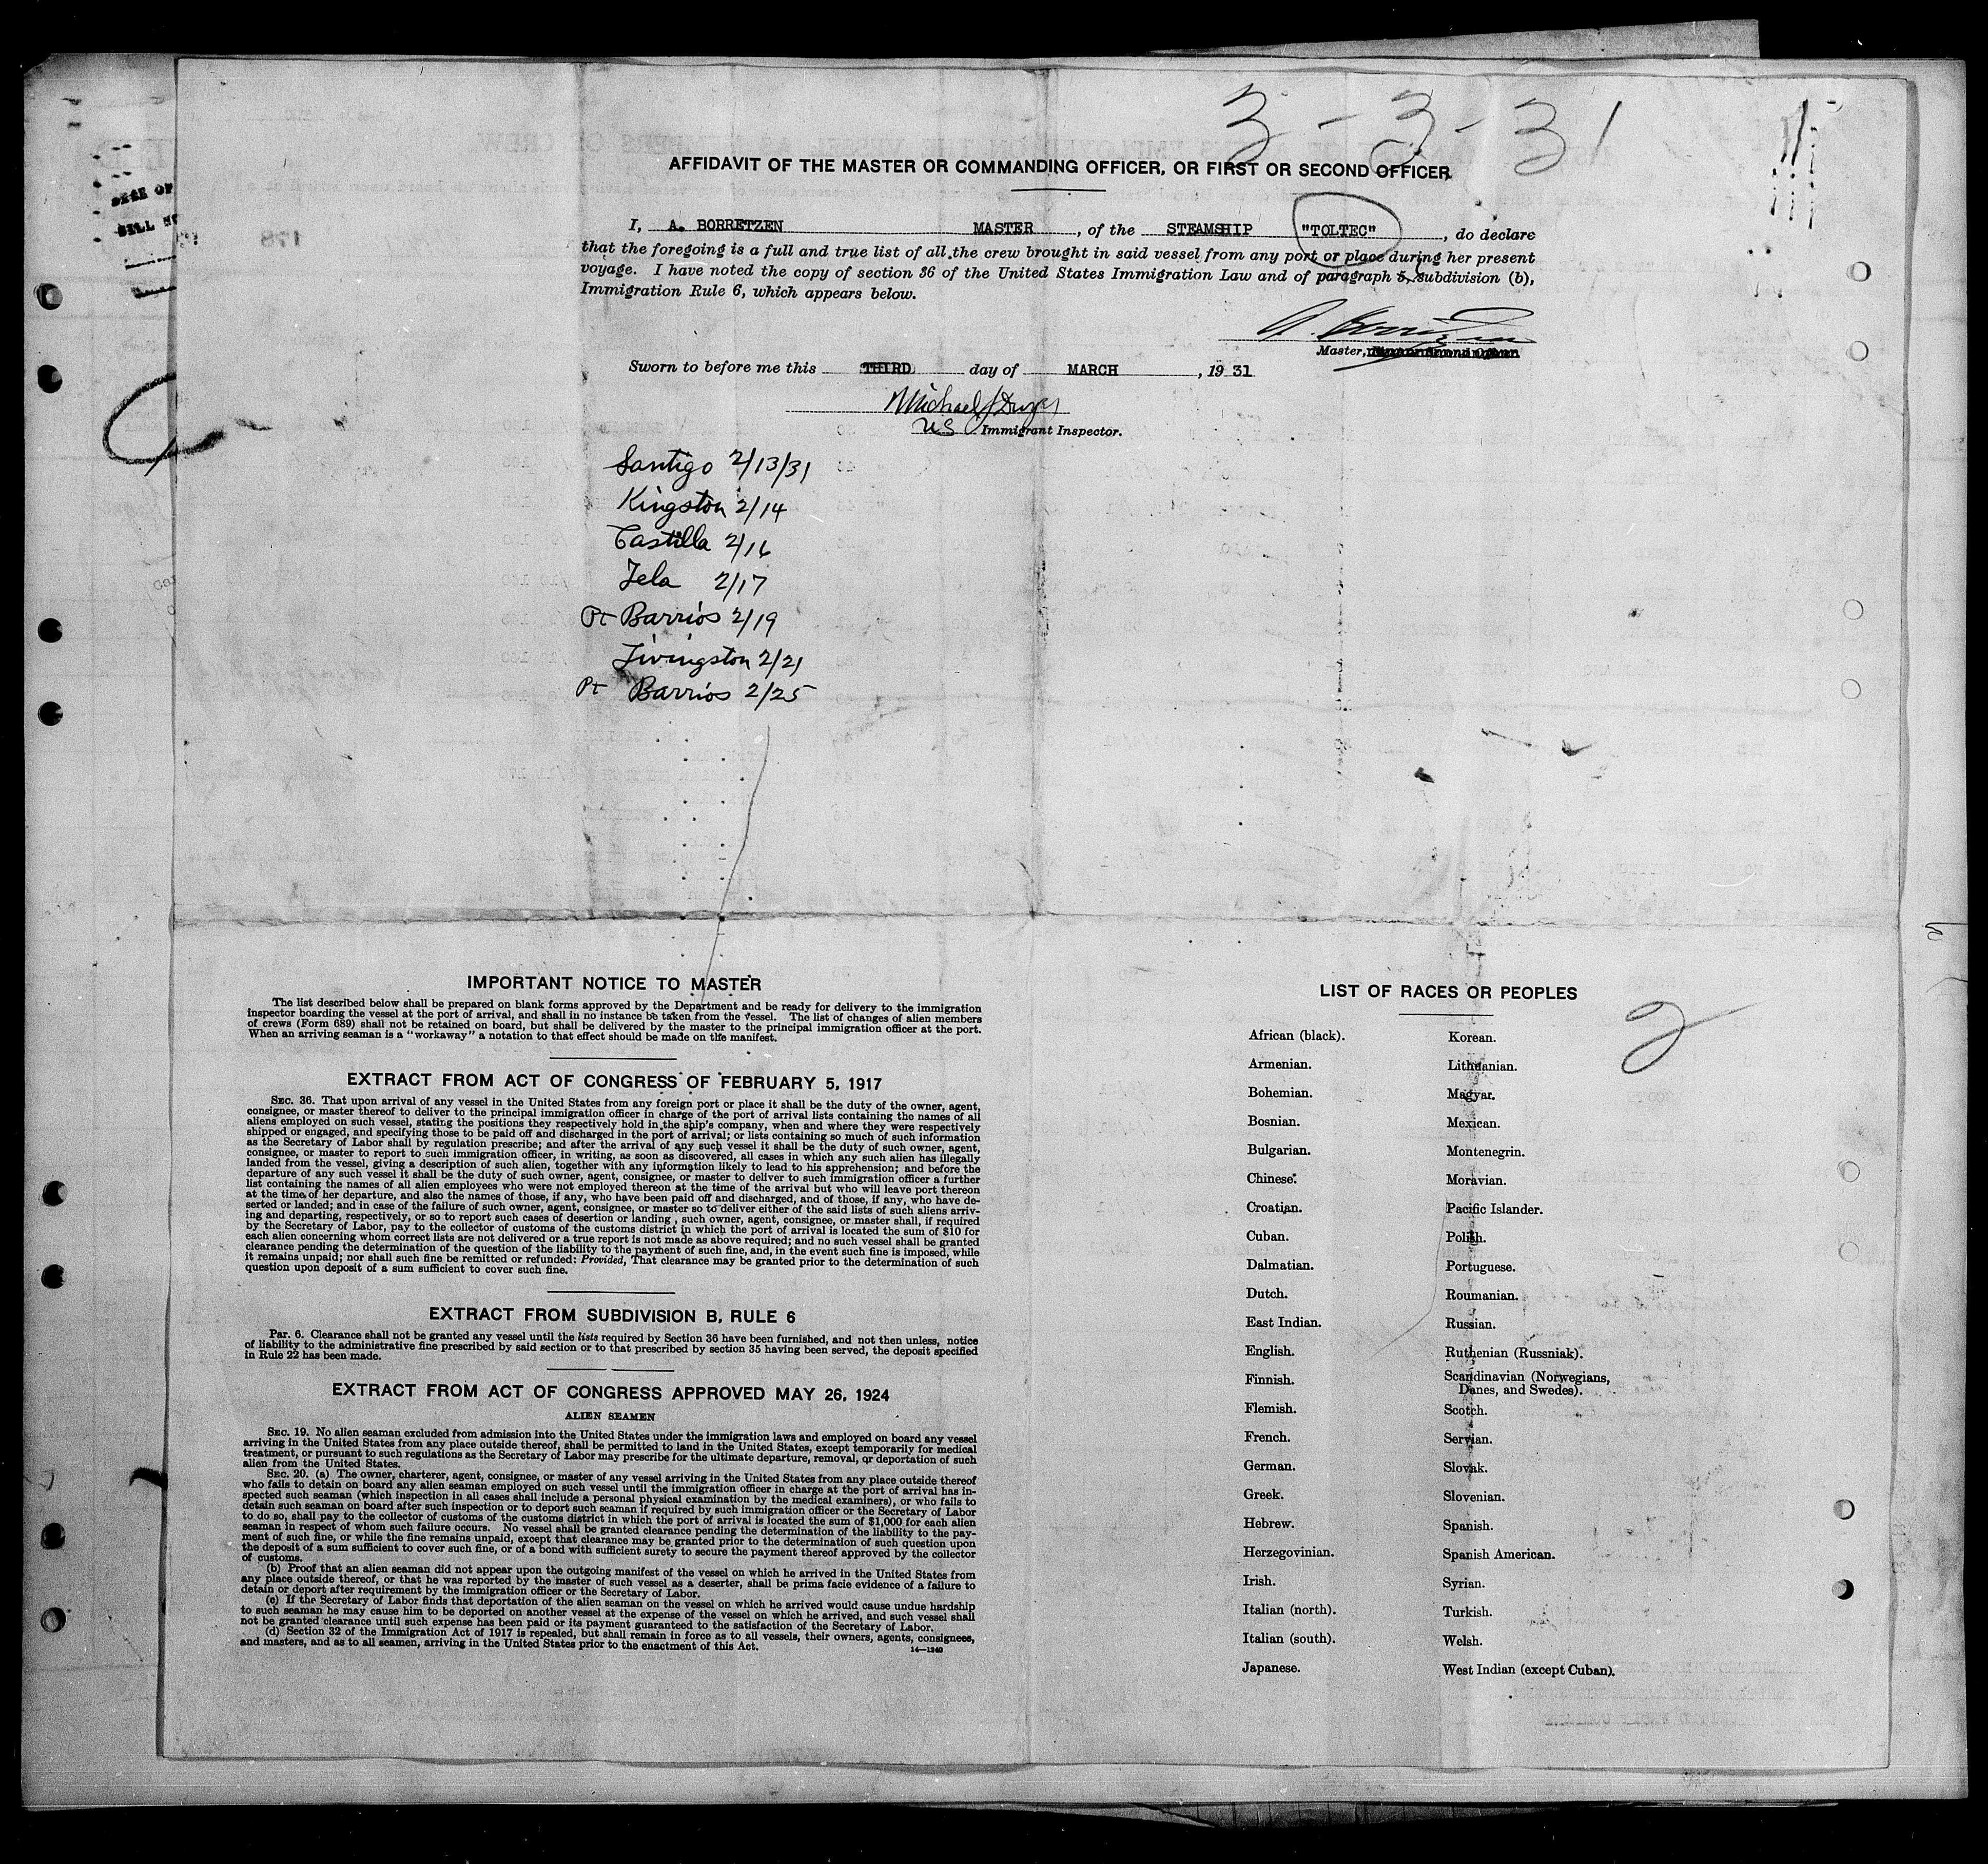 3 - 3 - 31
AFFIDAVIT OF THE MASTER OR COMMANDING OFFICER, OR FIRST OR SECOND OFFICER
I, A. BORRETZEN MASTER, of the STEAMSHIP "TOLTEC", do declare
that the foregoing is a full and true list of all the crew brought in said vessel from any port or place during her present
voyage. I have noted the copy of section 36 of the United States Immigration Law and of paragraph 5, subdivision (b),
Immigration Rule 6, which appears below.
Master,
Sworn to before me this THIRD day of MARCH, 1931
Michael
US Immigrant Inspector.
Santigo 2/13/31
Kingston 2/14
Castilla 2/16
Tela 2/17
Pt Barrios 2/19
Livingston 2/21
Pt Barrios 2/25
IMPORTANT NOTICE TO MASTER
The list described below shall be prepared on blank forms approved by the Department and be ready for delivery to the immigration
inspector boarding the vessel at the port of arrival, and shall in no instance be taken from the vessel. The list of changes of alien members
of crews (Form 689) shall not be retained on board, but shall be delivered by the master to the principal immigration officer at the port.
When an arriving seaman is a "workaway" a notation to that effect should be made on the manifest.
EXTRACT FROM ACT OF CONGRESS OF FEBRUARY 5, 1917
SEC. 36. That upon arrival of any vessel in the United States from any foreign port or place it shall be the duty of the owner, agent,
consignee, or master thereof to deliver to the principal immigration officer in charge of the port of arrival lists containing the names of all
aliens employed on such vessel, stating the positions they respectively hold in the ship's company, when and where they were respectively
shipped or engaged, and specifying those to be paid off and discharged in the port of arrival; or lists containing so much of such information
as the Secretary of Labor shall by regulation prescribe; and after the arrival of any such vessel it shall be the duty of such owner, agent,
consignee, or master to report to such immigration officer, in writing, as soon as discovered, all cases in which any such alien has illegally
landed from the vessel, giving a description of such alien, together with any information likely to lead to his apprehension; and before the
departure of any such vessel it shall be the duty of such owner, agent, consignee, or master to deliver to such immigration officer a further
list containing the names of all alien employees who were not employed thereon at the time of the arrival but who will leave port thereon
at the time of her departure, and also the names of those, if any, who have been paid off and discharged, and of those, if any, who have de-
serted or landed; and in case of the failure of such owner, agent, consignee, or master so to deliver either of the said lists of such aliens arriv-
ing and departing, respectively, or so to report such cases of desertion or landing, such owner, agent, consignee, or master shall, if required
by the Secretary of Labor, pay to the collector of customs of the customs district in which the port of arrival is located the sum of $10 for
each alien concerning whom correct lists are not delivered or a true report is not made as above required; and no such vessel shall be granted
clearance pending the determination of the question of the liability to the payment of such fine, and, in the event such fine is imposed, while
it remains unpaid; nor shall such fine be remitted or refunded: Provided, That clearance may be granted prior to the determination of such
question upon deposit of a sum sufficient to cover such fine.
EXTRACT FROM SUBDIVISION B, RULE 6
Par. 6. Clearance shall not be granted any vessel until the lists required by Section 36 have been furnished, and not then unless, notice
of liability to the administrative fine prescribed by said section or to that prescribed by section 35 having been served, the deposit specified
in Rule 22 has been made.
EXTRACT FROM ACT OF CONGRESS APPROVED MAY 26, 1924
ALIEN SEAMEN
SEC. 19. No alien seaman excluded from admission into the United States under the immigration laws and employed on board any vessel
arriving in the United States from any place outside thereof, shall be permitted to land in the United States, except temporarily for medical
treatment, or pursuant to such regulations as the Secretary of Labor may prescribe for the ultimate departure, removal, or deportation of such
alien from the United States.
SEC. 20. (a) The owner, charterer, agent, consignee, or master of any vessel arriving in the United States from any place outside thereof
who fails to detain on board any alien seaman employed on such vessel until the immigration officer in charge at the port of arrival has in-
spected such seaman (which inspection in all cases shall include a personal physical examination by the medical examiners), or who fails to
detain such seaman on board after such inspection or to deport such seaman if required by such immigration officer or the Secretary of Labor
to do so, shall pay to the collector of customs of the customs district in which the port of arrival is located the sum of $1,000 for each alien
seaman in respect of whom such failure occurs. No vessel shall be granted clearance pending the determination of the liability to the pay-
ment of such fine, or while the fine remains unpaid, except that clearance may be granted prior to the determination of such question upon
the deposit of a sum sufficient to cover such fine, or of a bond with sufficient surety to secure the payment thereof approved by the collector
of customs.
(b) Proof that an alien seaman did not appear upon the outgoing manifest of the vessel on which he arrived in the United States from
any place outside thereof, or that he was reported by the master of such vessel as a deserter, shall be prima facie evidence of a failure to
detain or deport after requirement by the immigration officer or the Secretary of Labor.
(c) If the Secretary of Labor finds that deportation of the alien seaman on the vessel on which he arrived would cause undue hardship
to such seaman he may cause him to be deported on another vessel at the expense of the vessel on which he arrived, and such vessel shall
not be granted clearance until such expense has been paid or its payment guaranteed to the satisfaction of the Secretary of Labor.
(d) Section 32 of the Immigration Act of 1917 is repealed, but shall remain in force as to all vessels, their owners, agents, consignees,
and masters, and as to all seamen, arriving in the United States prior to the enactment of this Act.
14—1240
LIST OF RACES OR PEOPLES
2
African (black). Korean.
Armenian. Lithuanian.
Bohemian. Magyar.
Bosnian. Mexican.
Bulgarian. Montenegrin.
Chinese. Moravian.
Croatian. Pacific Islander.
Cuban. Polish.
Dalmatian. Portuguese.
Dutch. Roumanian.
East Indian. Russian.
English. Ruthenian (Russniak).
Finnish. Scandinavian (Norwegians,
Danes, and Swedes).
Flemish. Scotch.
French. Servian.
German. Slovak.
Greek. Slovenian.
Hebrew. Spanish.
Herzegovinian. Spanish American.
Irish. Syrian.
Italian (north). Turkish.
Italian (south). Welsh.
Japanese. West Indian (except Cuban).